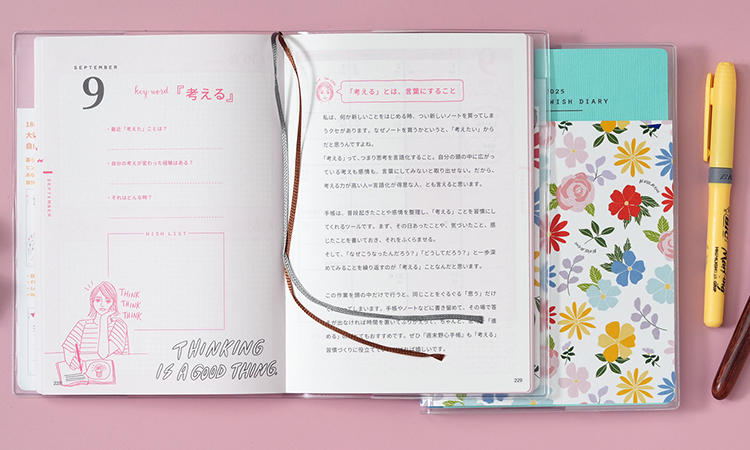 SEPTEMBER
9
key word 『考える』
・最近「考えた」ことは？
・自分の考えが変わった経験はある？
・それはどんな時？
SEPTEMBER
WISH LIST
THINK
THINK
THINK
THINKING
IS A GOOD THING.
228
「考える」とは、言葉にすること
私は、何か新しいことをはじめる時、つい新しいノートを買ってしま
うクセがあります。なぜノートを買うかというと、「考えたい」から
だと思うんですよね。
「考える」って、つまり思考を言語化すること。自分の頭の中に広がっ
ている考えも感情も、言葉にしてみないと取り出せない。だから、
考える力が高い人＝言語化が得意な人、とも言えると思います。
手帳は、普段起きたことや感情を整理し、「考える」ことを習慣にし
てくれるツールです。まず、その日あったことや、気づいたこと、感
じたことを書いておき、それをふくらませる。
そして、「なぜこうなったんだろう？」「どうしてだろう？」と一歩深
めてみることを繰り返すのが「考える」ことなんだと思います。
この作業を頭の中だけで行うと、同じことをぐるぐる「思う」だけ
になってしまいます。手帳やノートなどに書き留めて、その場で答
えが出なければ時間を置いて
のもおすすめです。ぜひ「週末野心手帳」も「考える」
習慣づくりに役立てて 嬉しいです。
229
2025
WISH DIARY